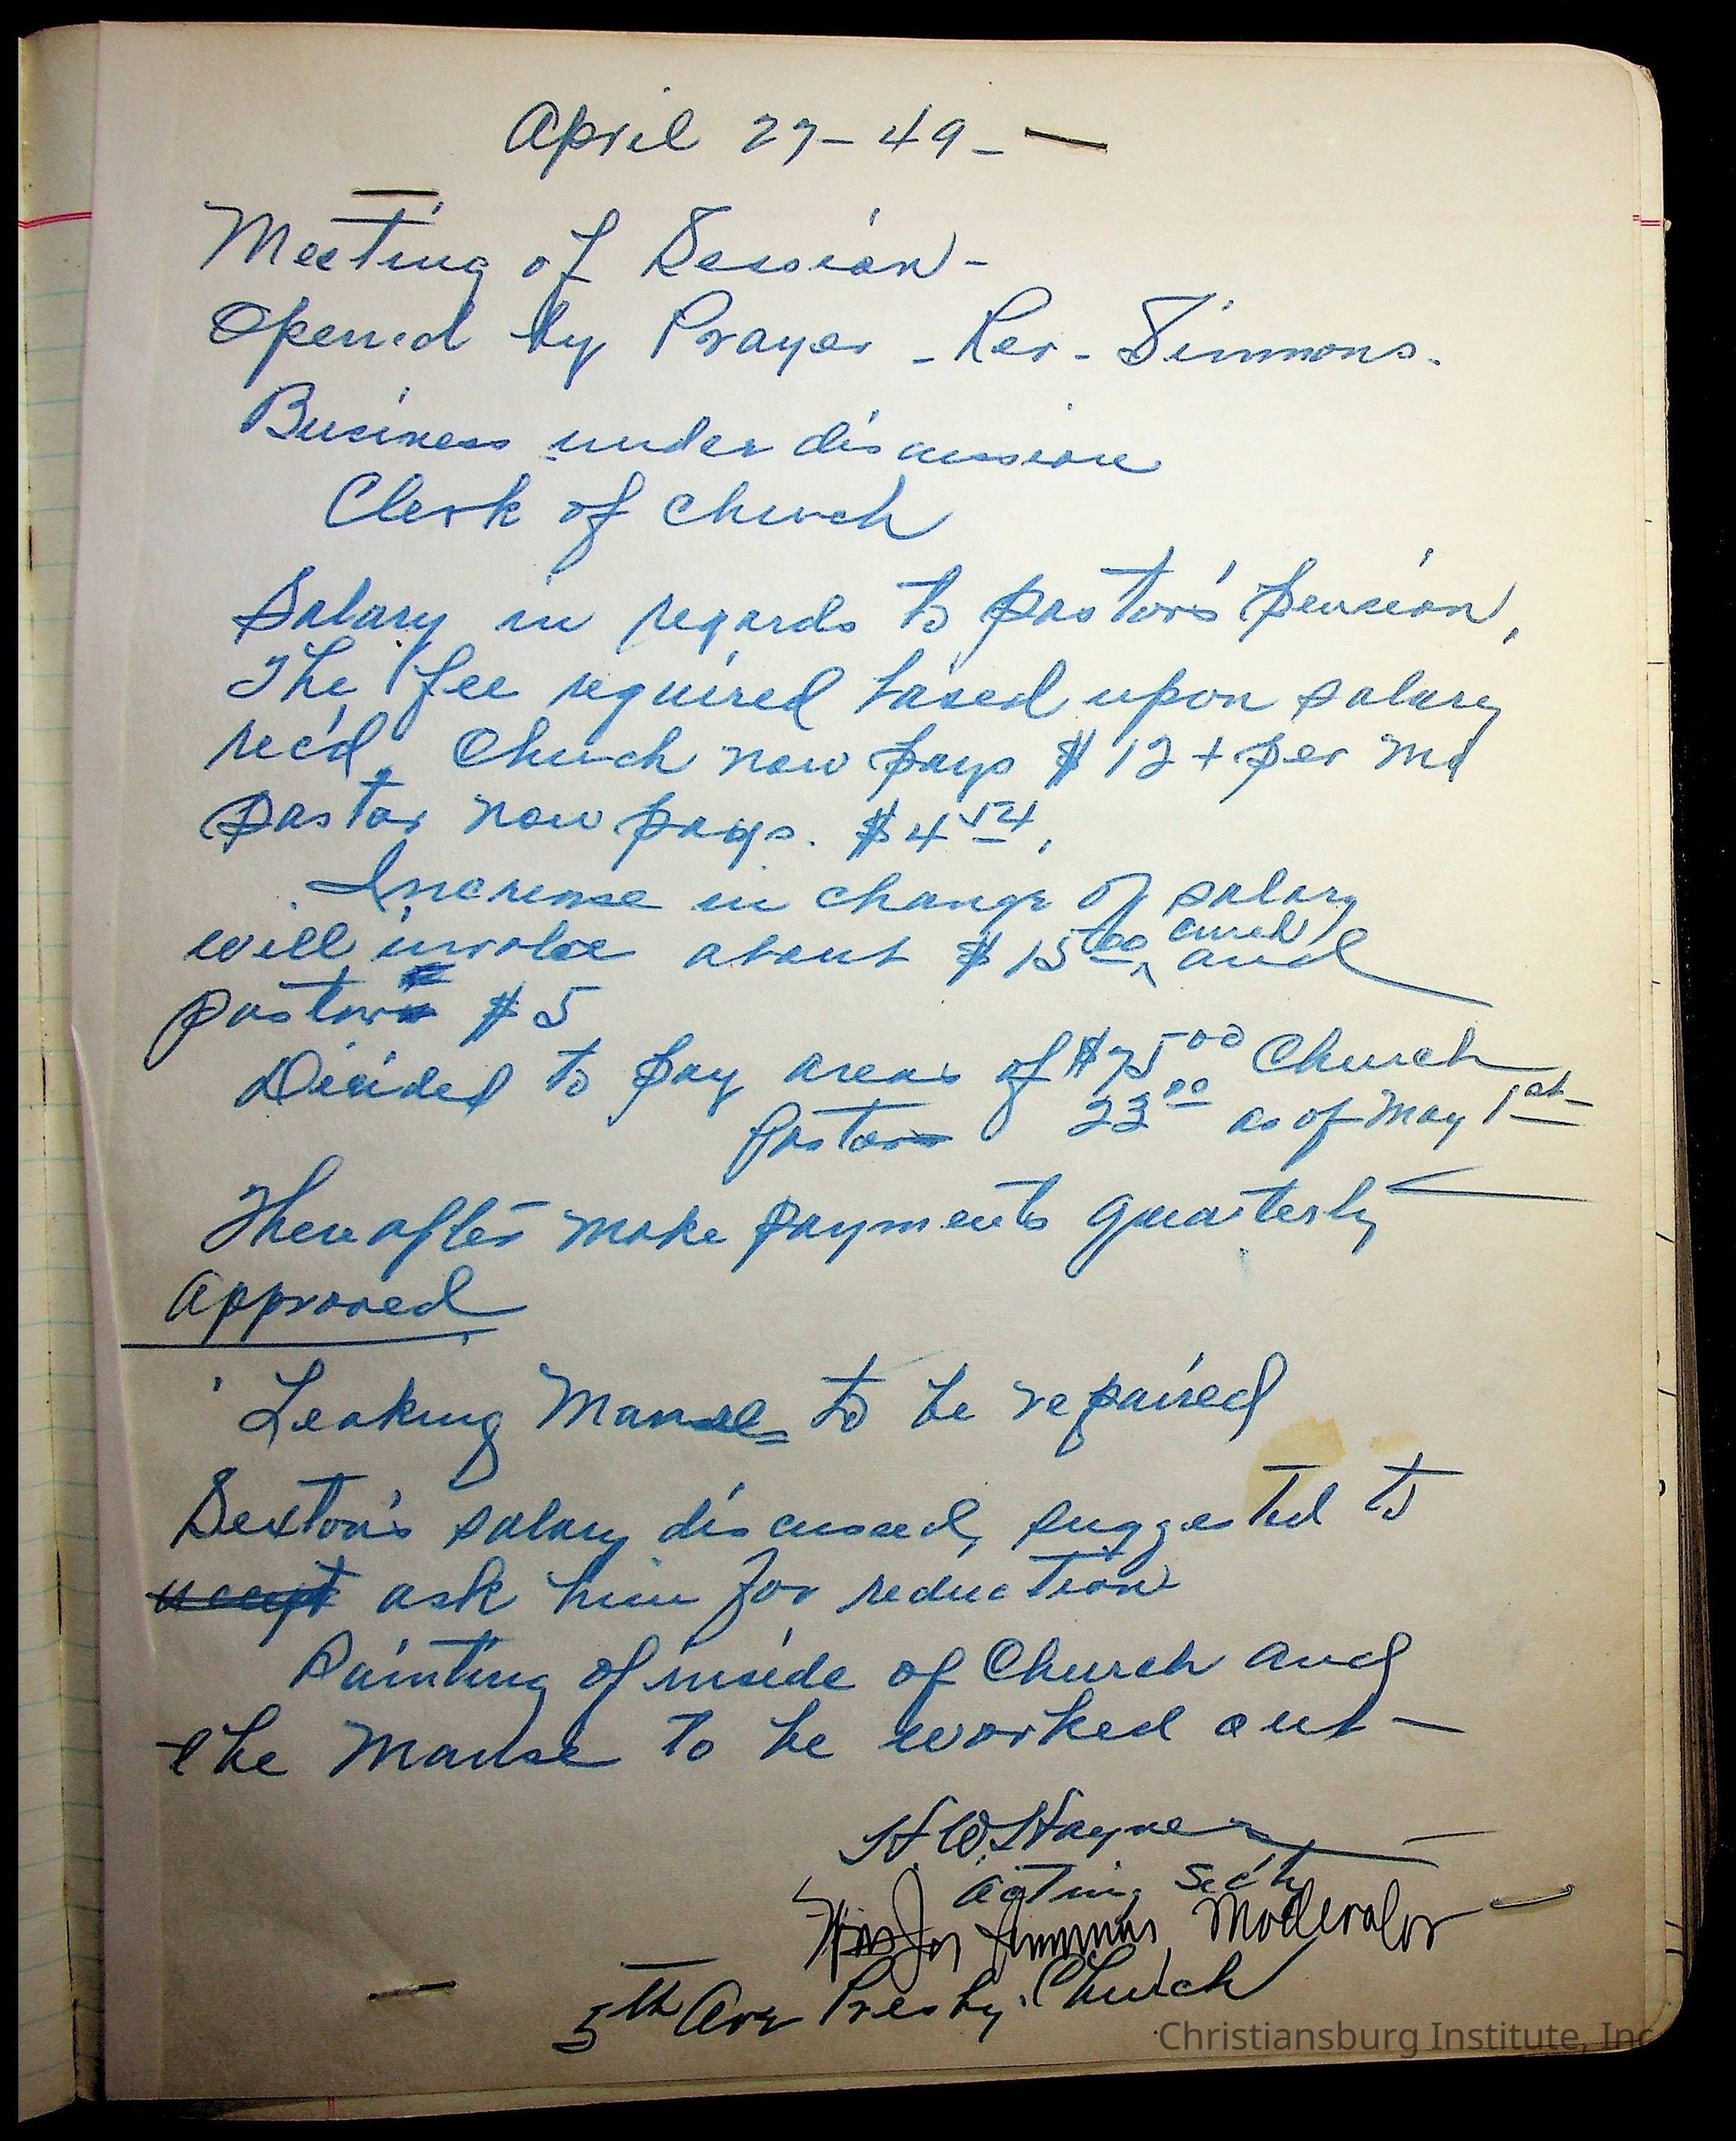 April 27-49-
Meeting of Session-
Opened by Prayer - Rev- Simmons.
Business under discussion
Clerk of Church
Salary in regards to pastor's pension,
The fee required based upon salary
rec'd. Church now pays $12+ per Mo
pastor now pays. $4 54.
Increase in change of salary
will involve about $15 00, and
pastor $5
Decided to pay arears of $75 00 Church
Pastor 23 00 as of May 1st
Thereafter make payments quarterly
approved
Leaking Manse to be repaired
Sexton's salary discussed, suggested to
accept ask him for reduction
Painting of inside of Church and
the Manse to be worked out-
H.W. Haynes
acting Sec'ty
Simmons Moderator
5th Ave Presby. Church
Christiansburg Institute, Inc